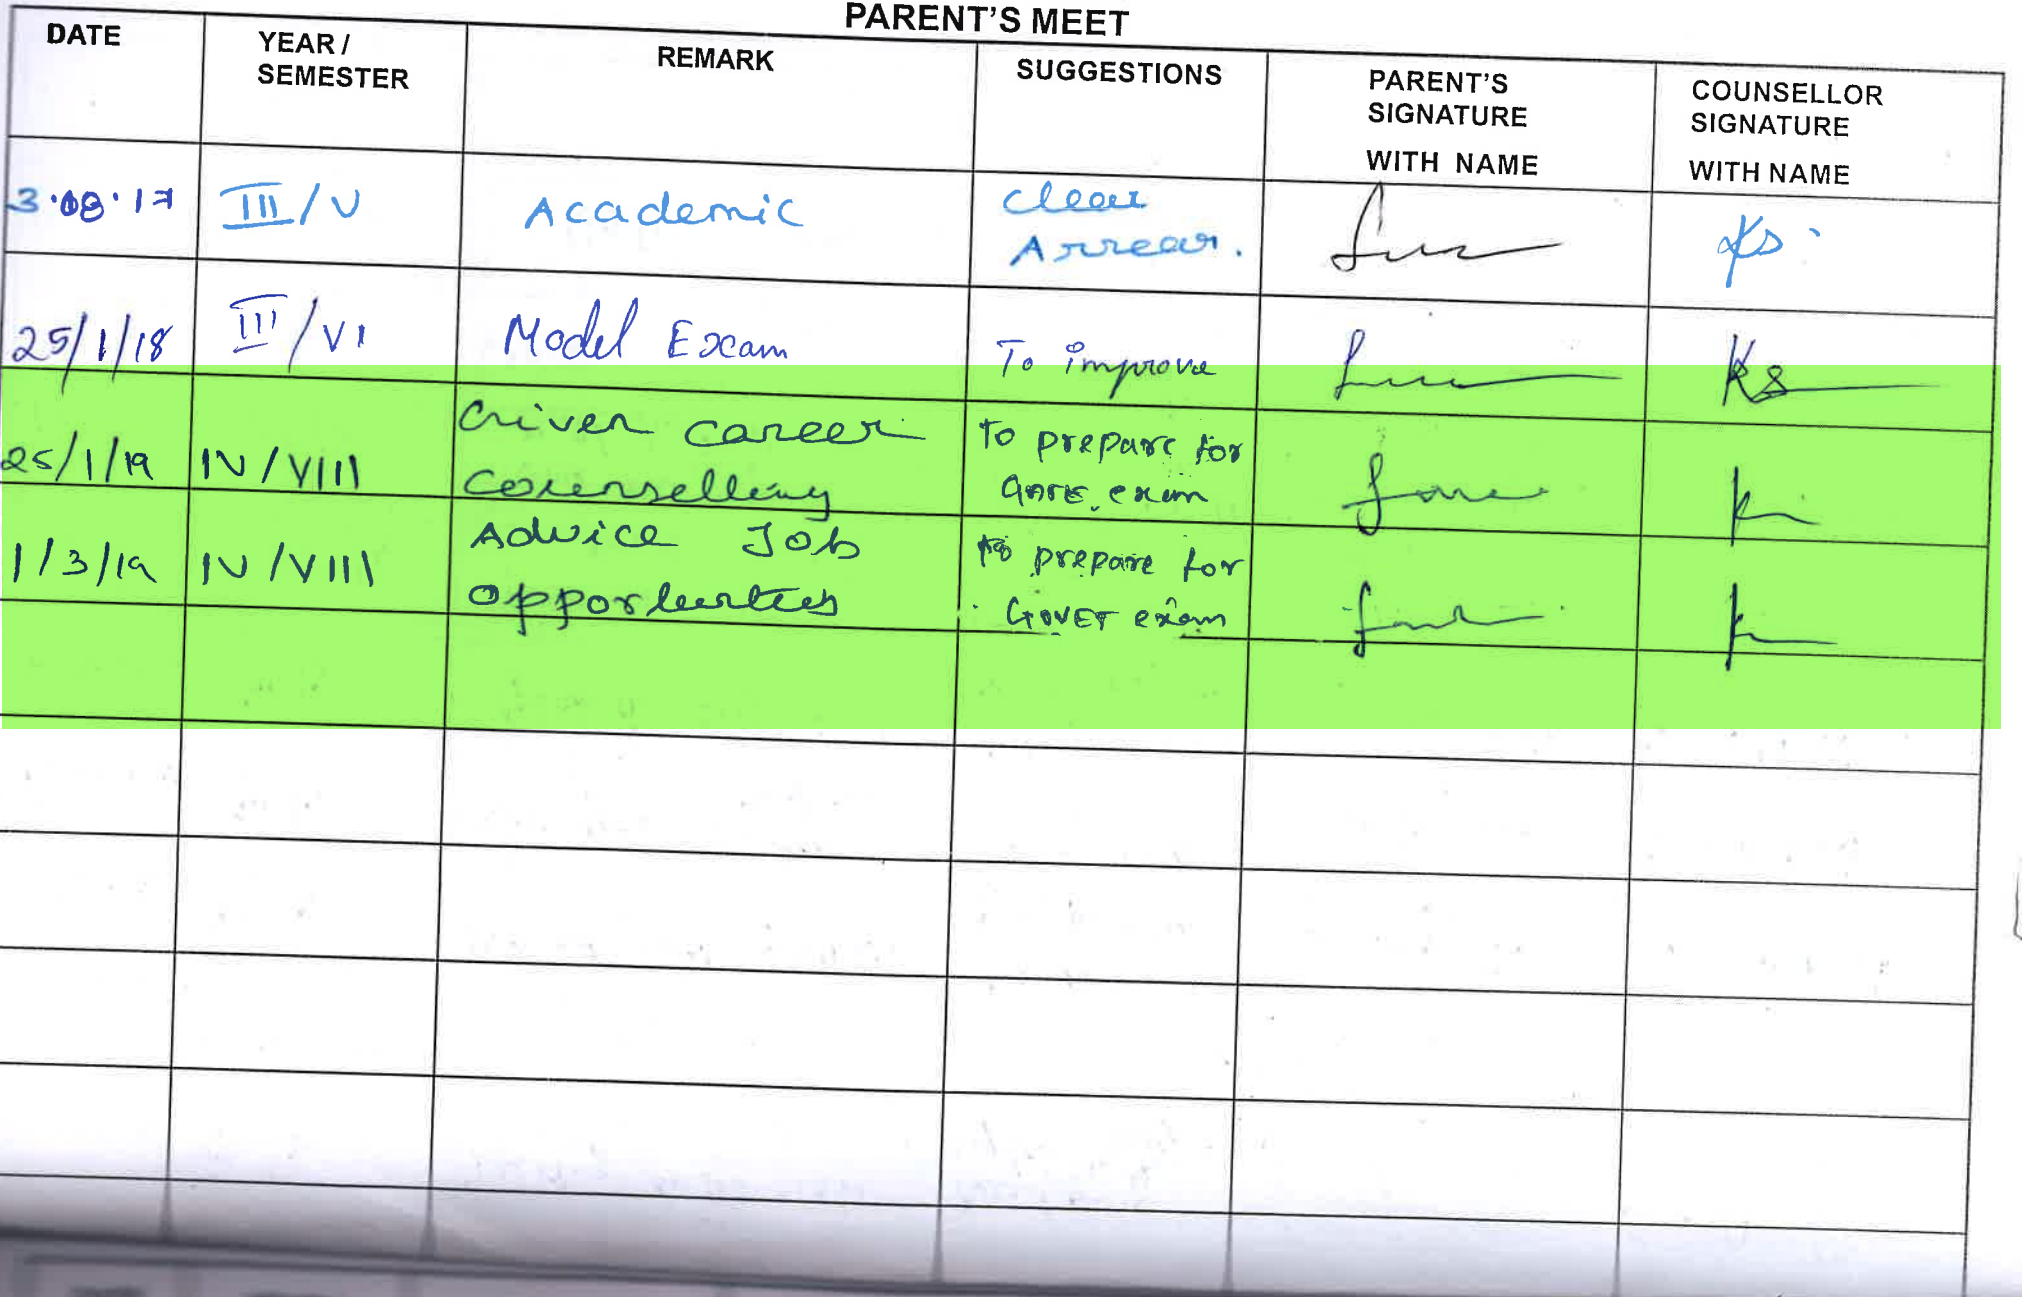 PARENT'S MEET
DATE YEAR / SEMESTER REMARK SUGGESTIONS PARENT'S SIGNATURE WITH NAME COUNSELLOR SIGNATURE WITH NAME
3.08.17 III/V Academic Clear
Arrear.
25/1/18 III/VI Model Exam To improve Ks
25/1/19 IV/VIII Given career To prepare for
Counselling GATE exam
1/3/19 IV/VIII Advice Job to prepare for
Opportunities GOVET exam